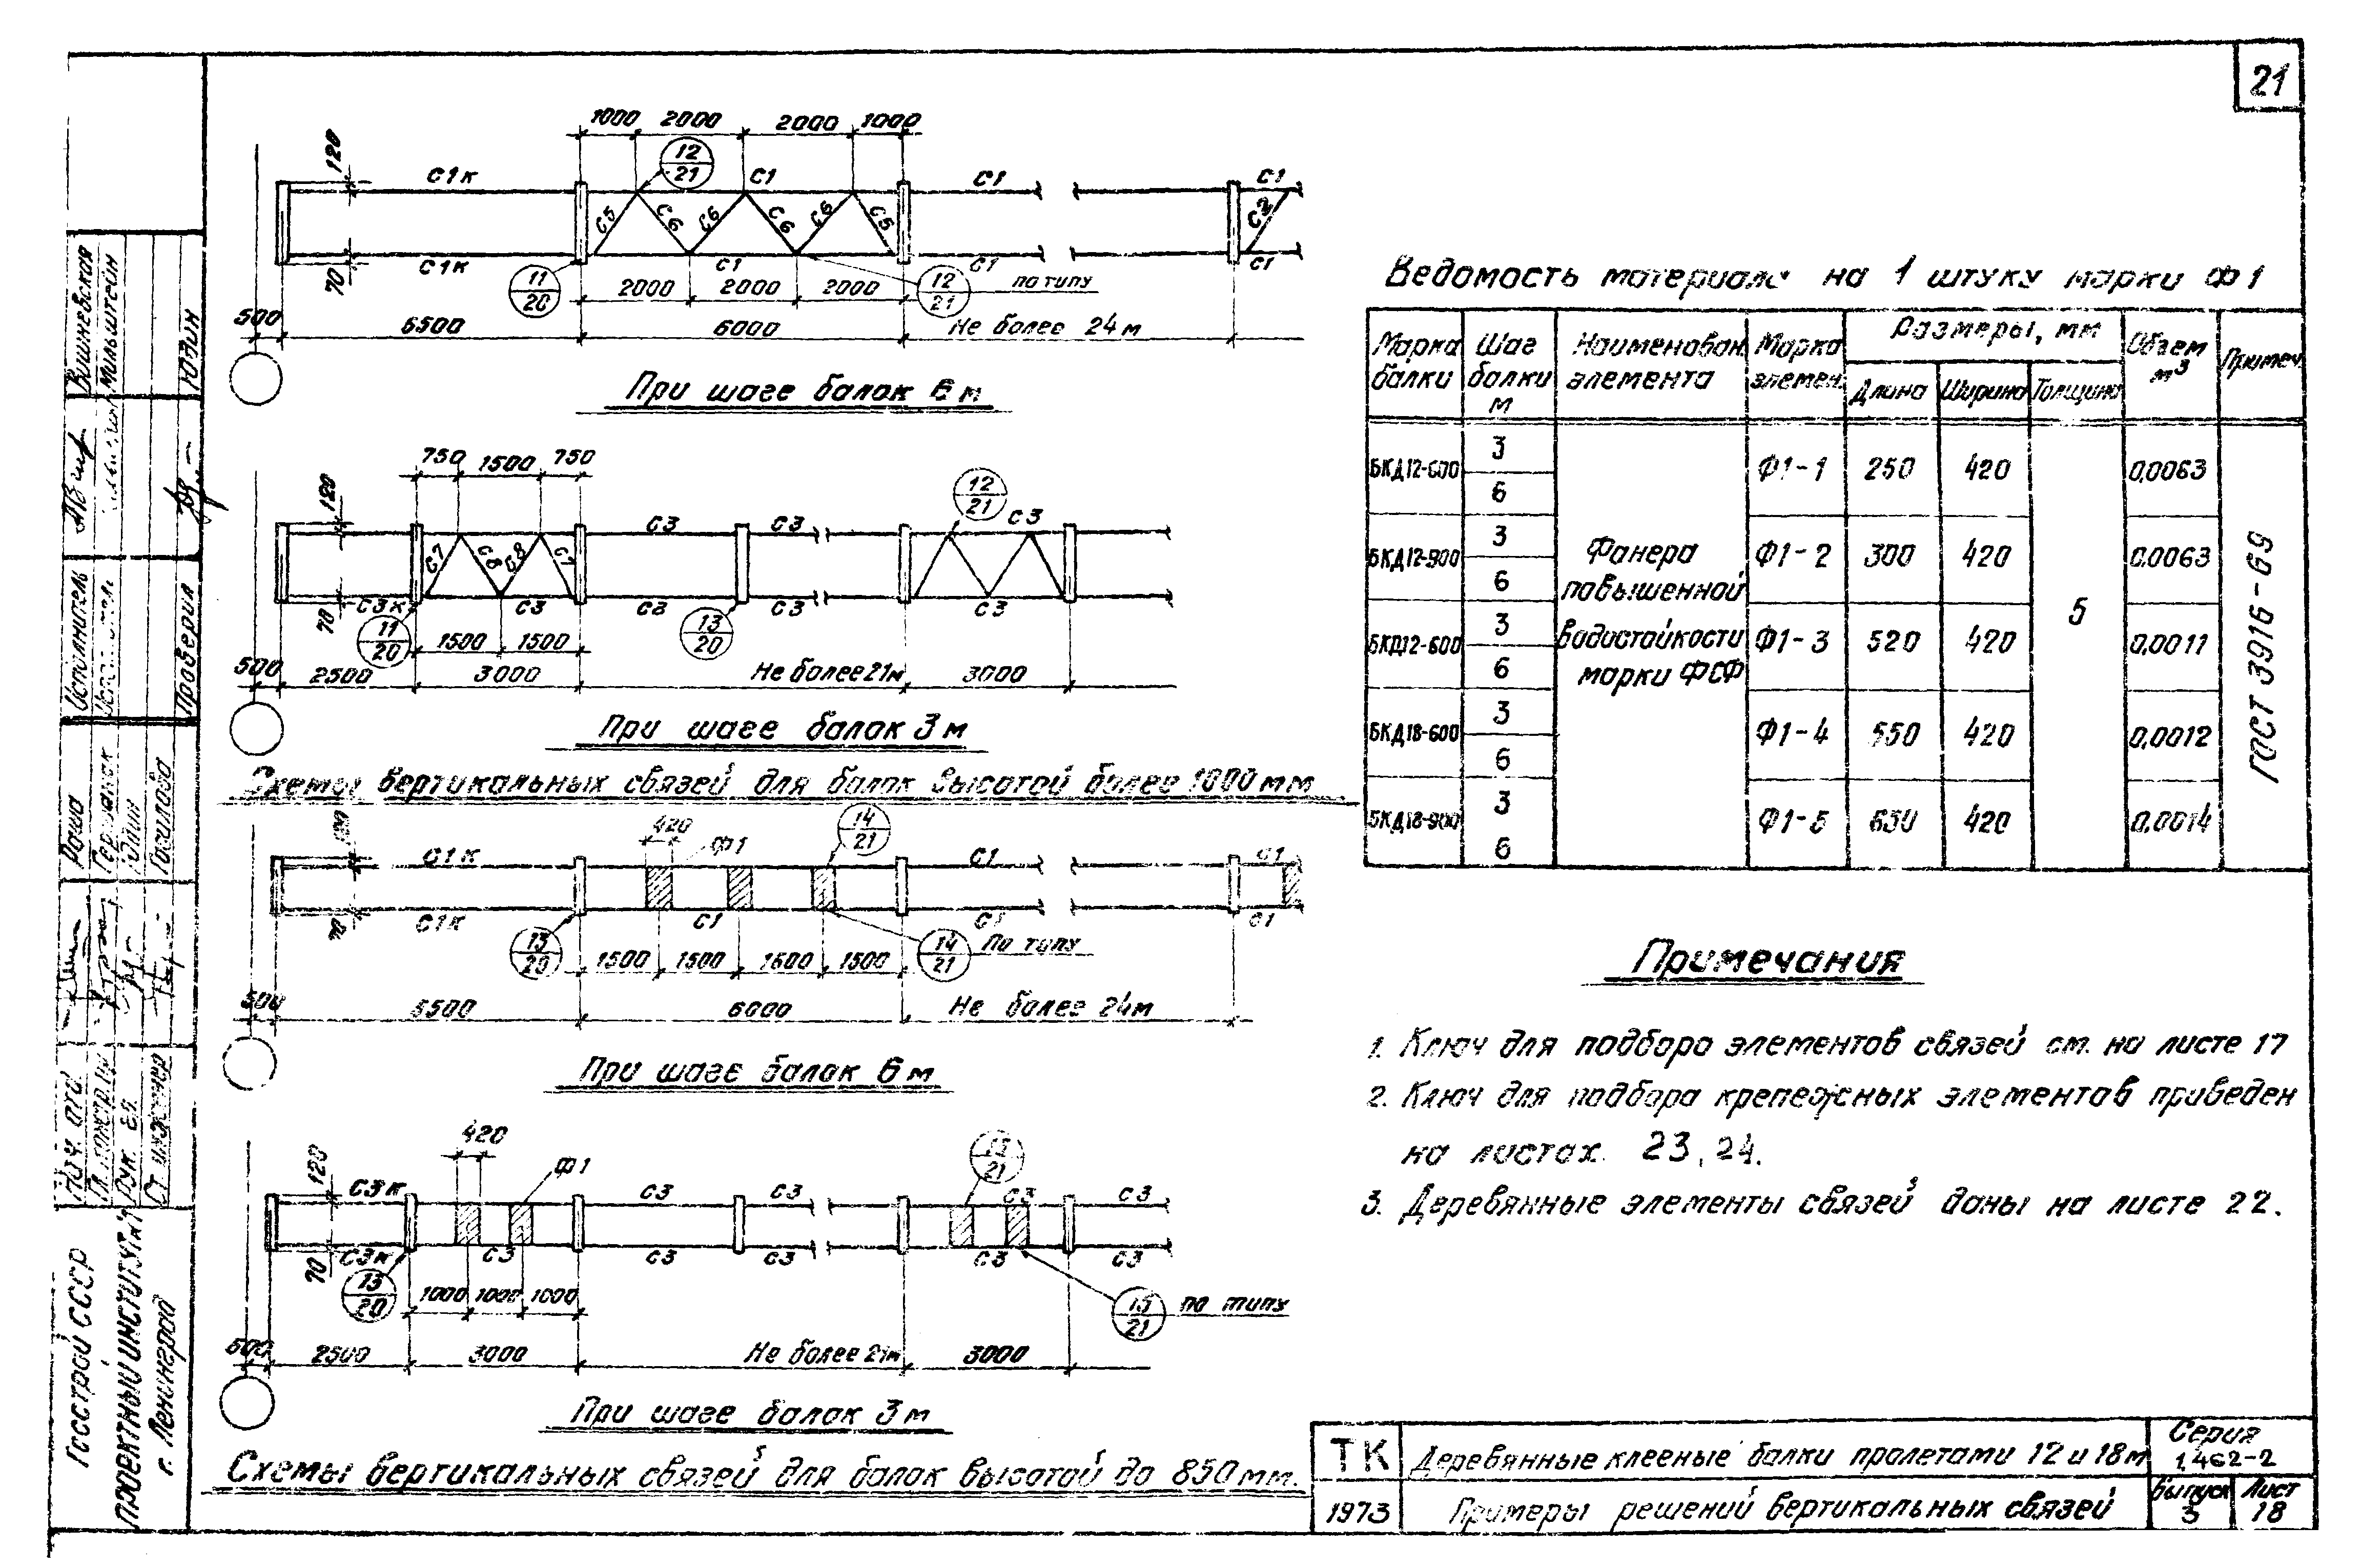 21
1000 2000 2000 1000
120 С1к 12/21 С1 С1 С1
С5 С6 С6 С6 С6 С5 С2
70 С1к 11/20 С1 12/21 по типу С1 С1
2000 2000 2000
500 5500 6000 Не более 24м
При шаге балок 6м
750 1500 750
120 12/21
С3 С3 С3
С7 С8 С8 С7
70 С3к 11/20 С3 С3 13/20 С3 С3
1500 1500
500 2500 3000 Не более 21м 3000
При шаге балок 3м
Схемы вертикальных связей для балок высотой более 1000мм
420 Ф1 14/21
120 С1к С1 С1
70 С1к 13/20 С1 14/21 По типу С1 С1
1500 1500 1500 1500
500 5500 6000 Не более 24м
При шаге балок 6м
420 Ф1 15/21
120 С3к С3 С3 С3 С3
70 С3к 13/20 С3 С3 С3 С3 С3
1000 1000 1000 15/21 по типу
500 2500 3000 Не более 21м 3000
При шаге балок 3м
Схемы вертикальных связей для балок высотой до 850мм.
Ведомость материала на 1 штуку марки Ф1
Марка балки
Шаг балки м
Наименован. элемента
Марка элемен.
Размеры, мм
Длина Ширина Толщина
Объем м3
Примеч.
БКД12-600 3 6 Ф1-1 250 420 0,0063
БКД12-900 3 6 Ф1-2 300 420 0,0063
БКД12-600 3 6 Ф1-3 520 420 0,0011
БКД18-600 3 6 Ф1-4 550 420 0,0012
БКД18-900 3 6 Ф1-5 650 420 0,0014
Фанера
повышенной
водостойкости
марки ФСФ
5
ГОСТ 3916-69
Примечания
1. Ключ для подбора элементов связей см. на листе 17
2. Ключ для подбора крепежных элементов приведен
на листах 23, 24.
3. Деревянные элементы связей даны на листе 22.
ТК Деревянные клееные балки пролетами 12 и 18м Серия 1.462-2
1973 Примеры решений вертикальных связей Выпуск 3 Лист 18
Госстрой СССР
Проектный институт №1
г. Ленинград
Нач. отд.
Гл. констр.
Рук. гр.
Ст. инженер
Юдин
Исполнитель
Проверил
Вишневская
Мильштейн
Юдин